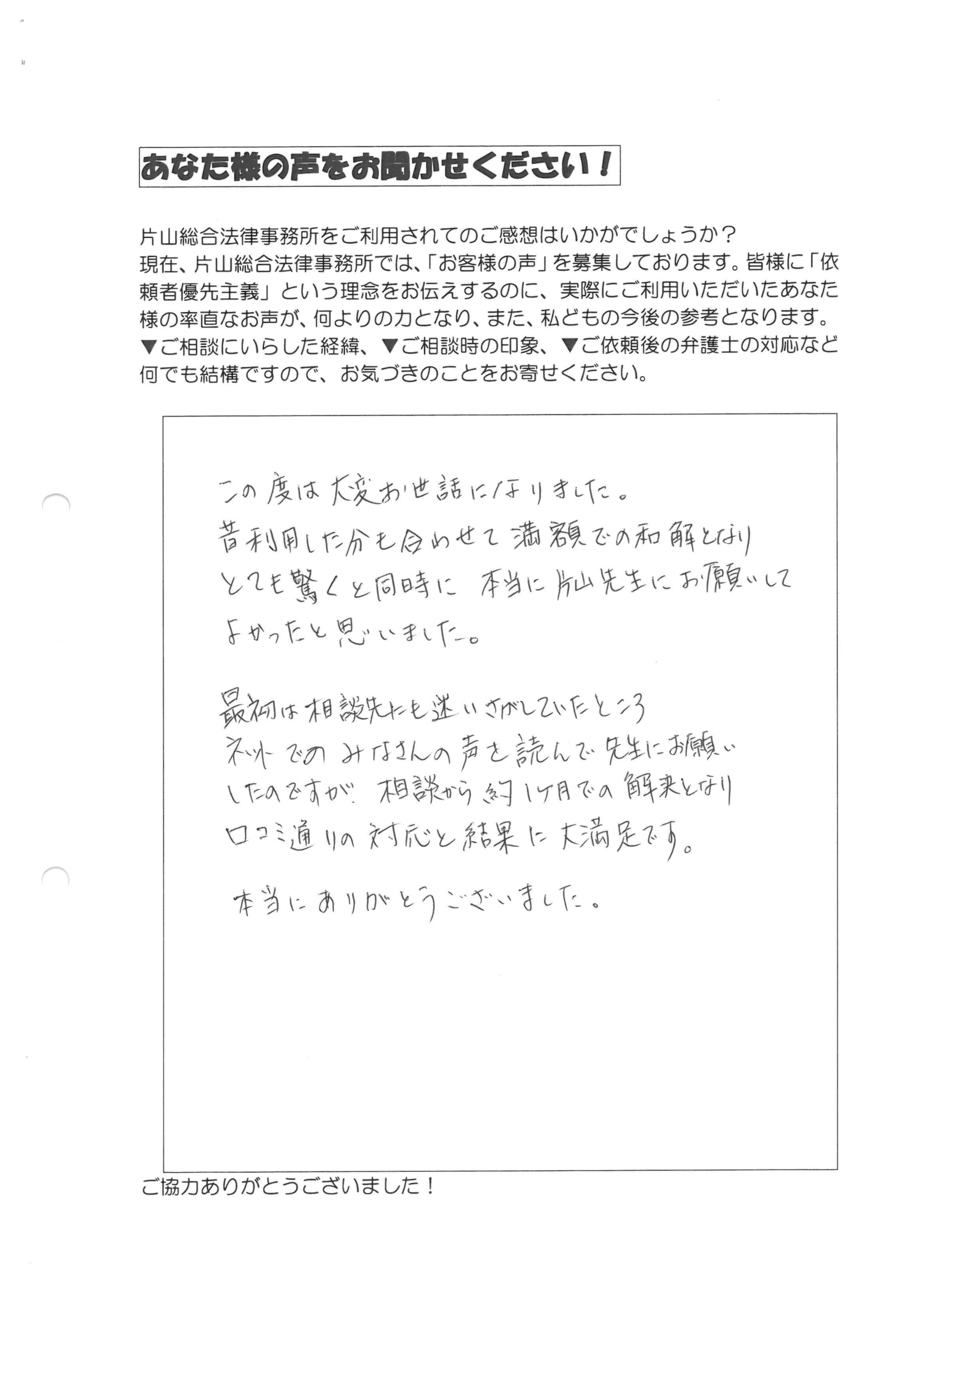 あなた様の声をお聞かせください！
片山総合法律事務所をご利用されてのご感想はいかがでしょうか？
現在、片山総合法律事務所では、「お客様の声」を募集しております。皆様に「依
頼者優先主義」という理念をお伝えするのに、実際にご利用いただいたあなた
様の率直なお声が、何よりの力となり、また、私どもの今後の参考となります。
▼ご相談にいらした経緯、▼ご相談時の印象、▼ご依頼後の弁護士の対応など
何でも結構ですので、お気づきのことをお寄せください。
この度は大変お世話になりました。
昔利用した分も合わせて満額での和解となり
とても驚くと同時に 本当に片山先生にお願いして
よかったと思いました。
最初は相談先にも迷いさがしていたところ
ネットでのみなさんの声を読んで先生にお願い
したのですが、相談から約1ケ月での解決となり
口コミ通りの対応と結果に大満足です。
本当にありがとうございました。
ご協力ありがとうございました！